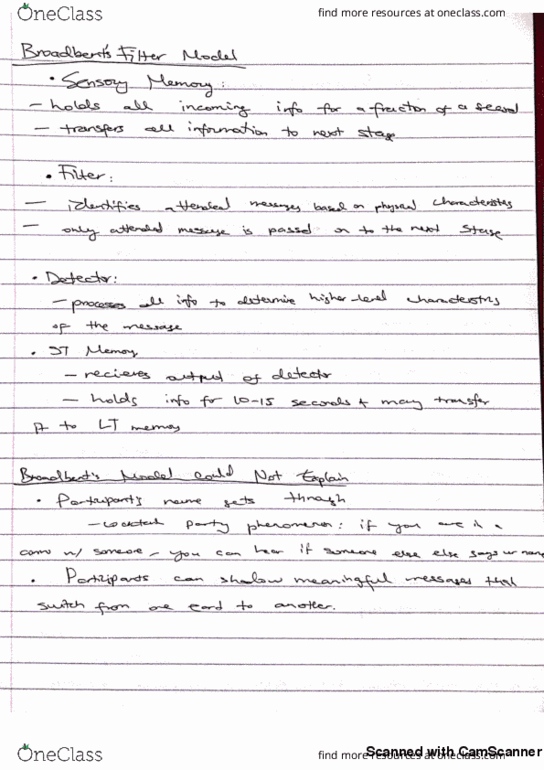 OneClass
find more resources at oneclass.com
Broadbent's Filter Model
• Sensory Memory:
– holds all incoming info for a fraction of a second
– transfers all information to next stage
• Filter:
– identifies attended messages based on physical characteristics
– only attended message is passed on to the next stage
• Detector:
– processes all info to determine higher-level characteristics
of the message
• ST Memory
– recieves output of detector
– holds info for 10-15 seconds + may transfer
it to LT memory
Broadbent's Model Could Not Explain
• Participant's name gets through
– cocktail party phenomenon: if you are in a
convo w/ someone, you can hear if someone else else says ur name
• Participants can shadow meaningful messages that
switch from one eard to another.
OneClass
find more resources at oneclass.com
Scanned with CamScanner